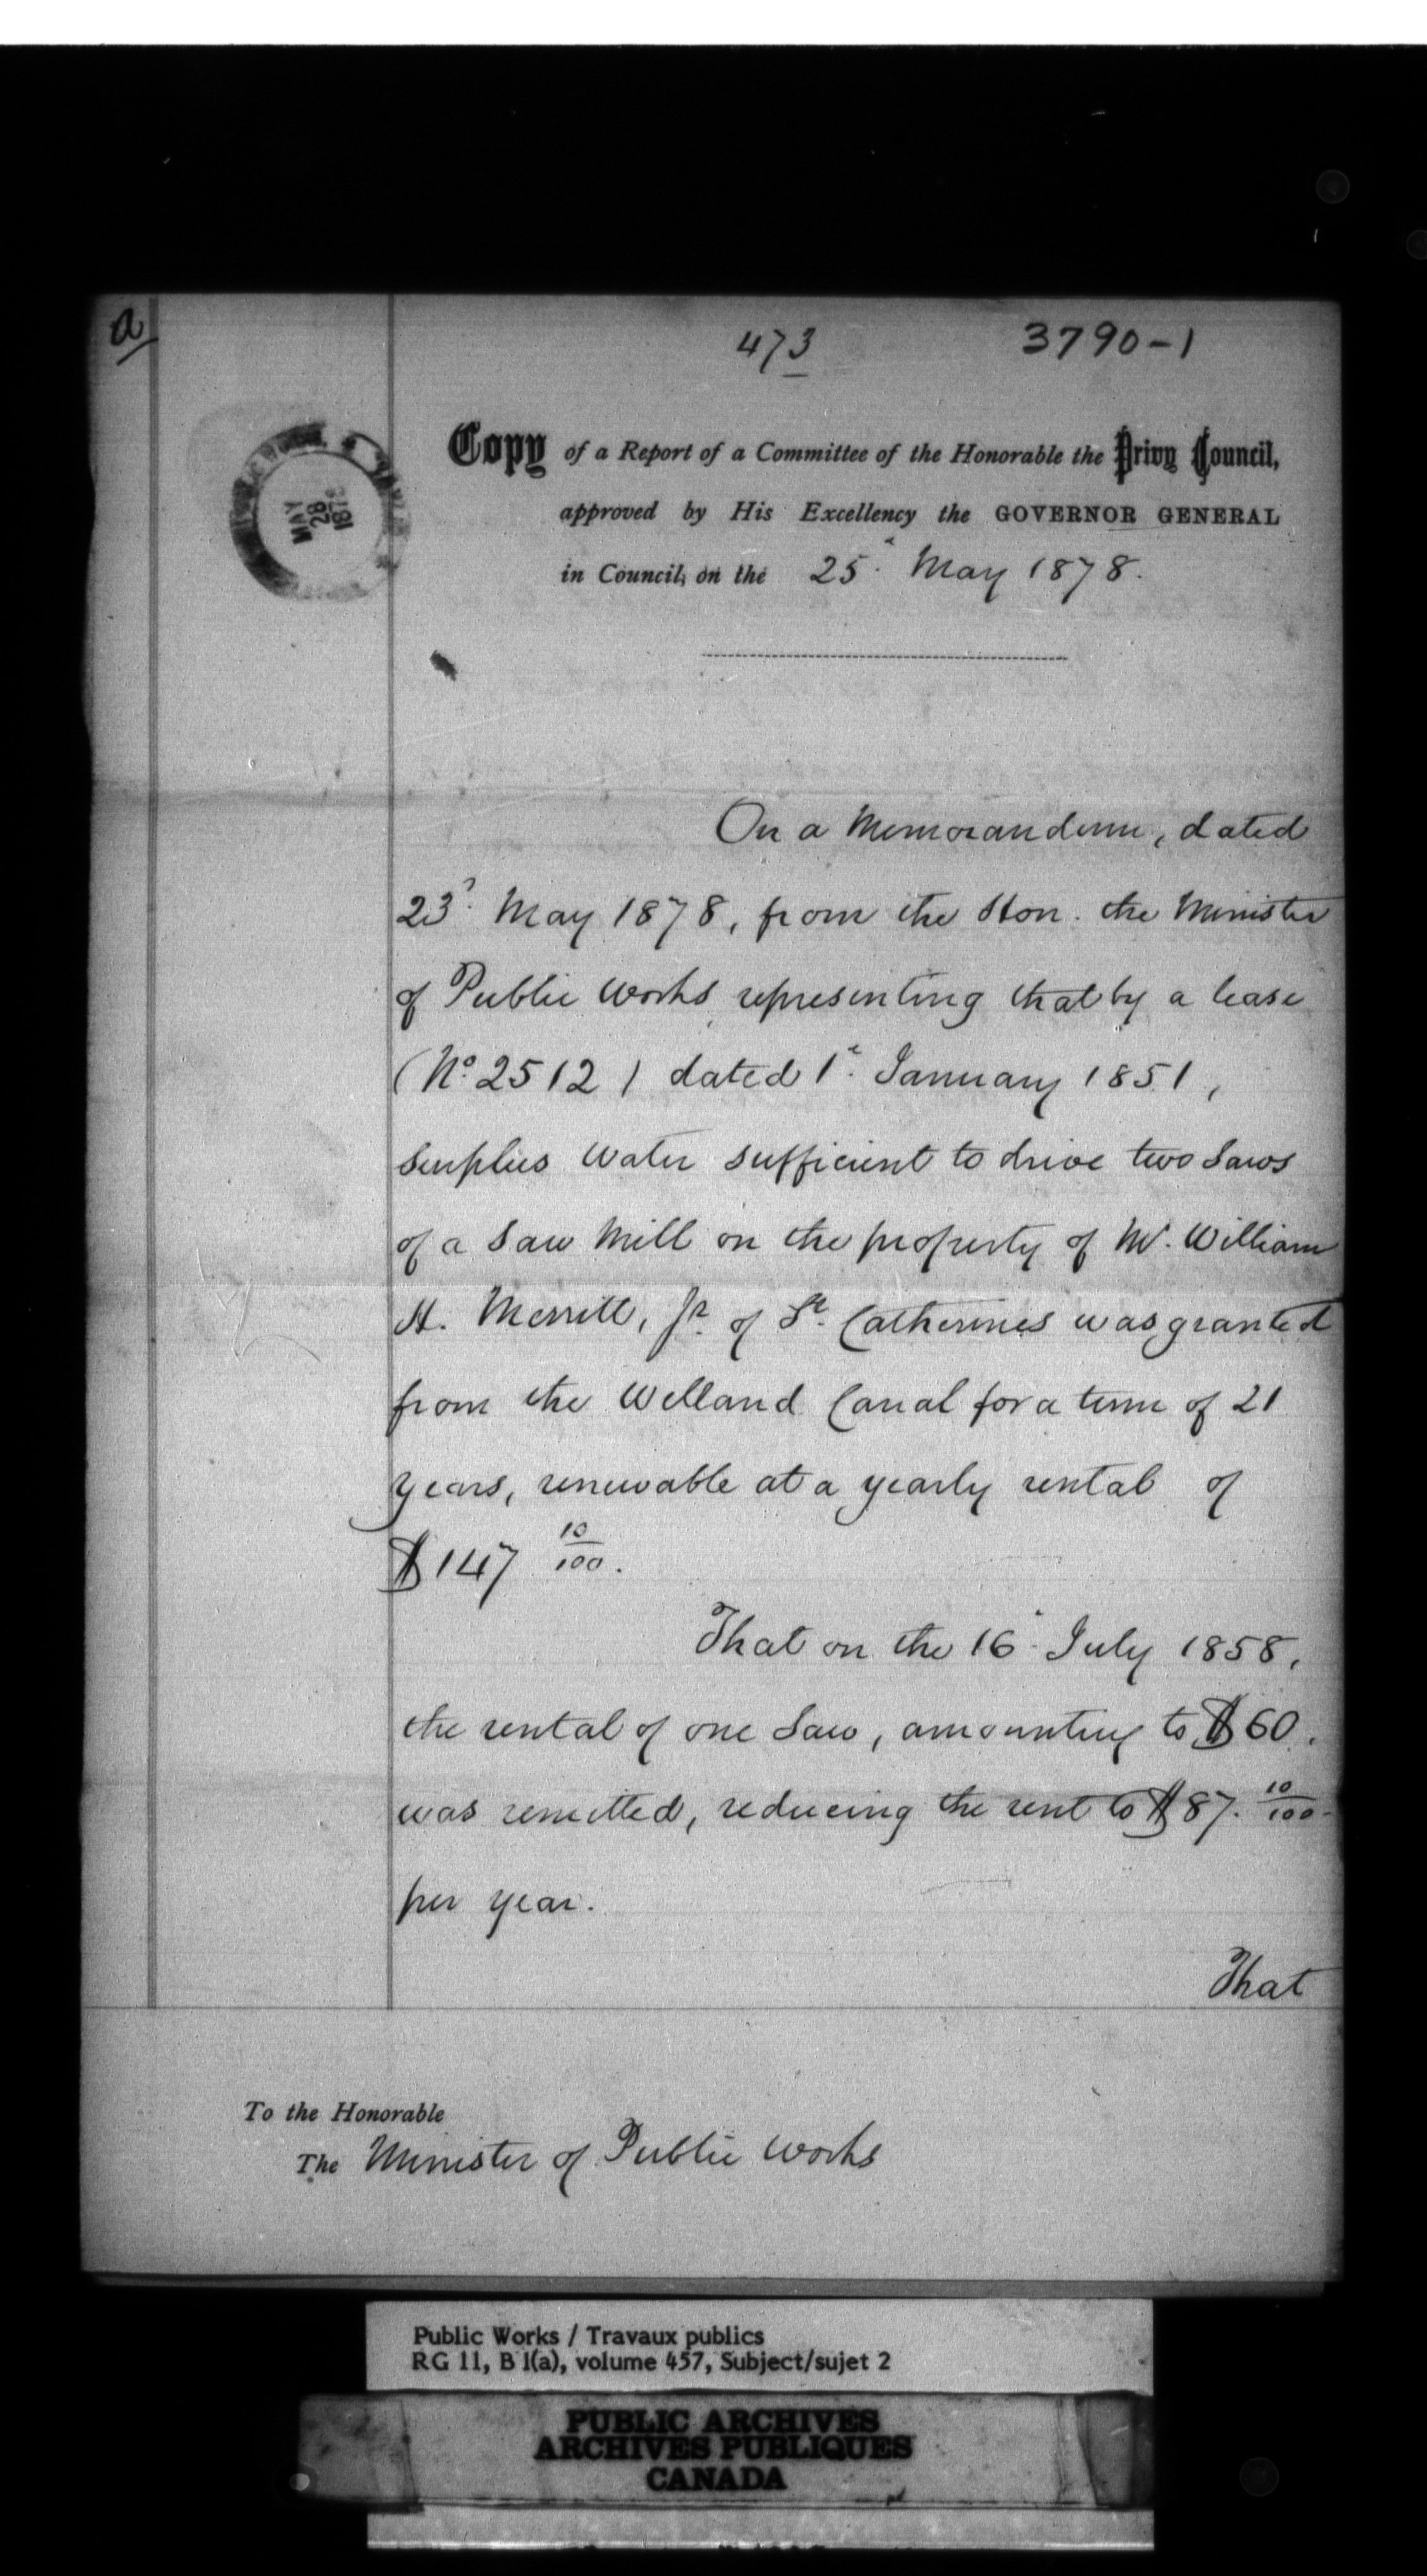 a
473
3790-1
MAY
28
1878
Copy of a Report of a Committee of the Honorable the Privy Council,
approved by His Excellency the GOVERNOR GENERAL
in Council, on the 25th May 1878.
On a Memorandum, dated
23d. May 1878, from the Hon. the Minister
of Public Works representing that by a lease
(No. 2512) dated 1st. January 1851,
surplus water sufficient to drive two saws
of a saw mill on the property of Mr. William
H. Merritt, Jr. of St. Catherines was granted
from the Welland Canal for a term of 21
years, renewable at a yearly rental of
$147 10/100.
That on the 16th July 1858,
the rental of one saw, amounting to $60.
was remitted, reducing the rent to $87. 10/100
per year.
That
To the Honorable
The Minister of Public Works
Public Works / Travaux publics
RG 11, B 1(a), volume 457, Subject/sujet 2
PUBLIC ARCHIVES
ARCHIVES PUBLIQUES
CANADA